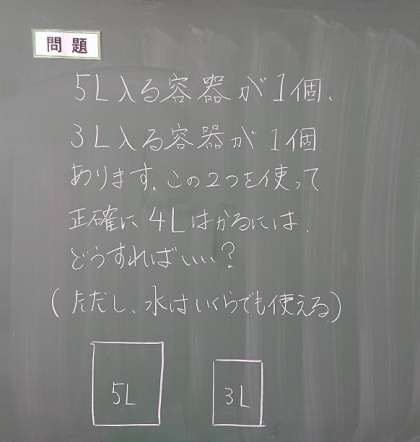 問題
5L入る容器が1個、
3L入る容器が1個
あります。この2つを使って
正確に4Lはかるには、
どうすればいい？
(ただし、水はいくらでも使える)
5L
3L